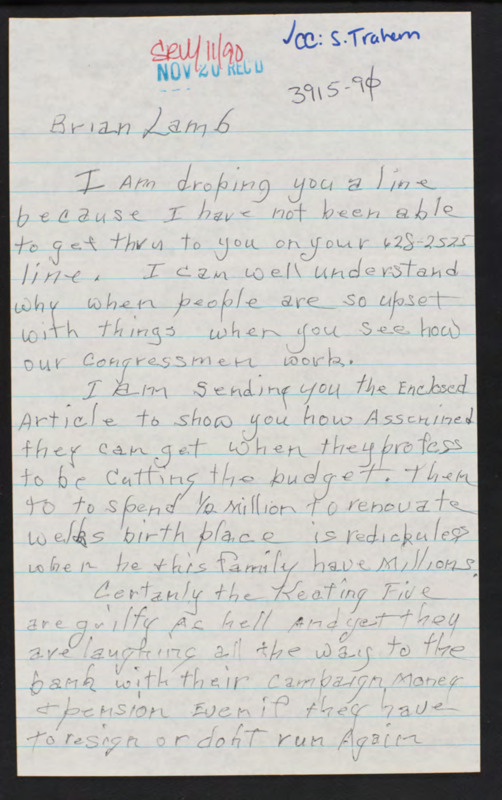 ✓CC: S. Trahern
SRW/11/90
NOV 20 REC'D
3915-90
Brian Lamb
I Am droping you a line
because I have not been able
to get thru to you on your 628-2525
line. I can well understand
why when people are so upset
with things when you see how
our Congressmen work.
I Am Sending you the Enclosed
Article to show you how Assenined
they can get when they profess
to be Cutting the budget. Then
to to spend 1/2 Million to renovate
welks birth place is redickuless
when he & his family have Millions.
Certanly the Keating Five
are guilty As hell And yet they
are laughing all the way to the
bank with their Campaign Money
& pension Even if they have
to resign or don't run Again